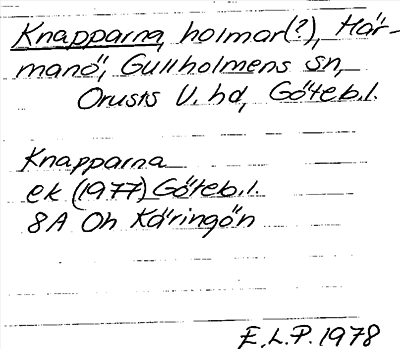 Knapparna, holmar(?), Här-
manö, Gullholmens sn,
Orusts V. hd, Göteb.l.
Knapparna
ek (1977) Göteb.l.
8A Oh Käringön
E.L.P. 1978